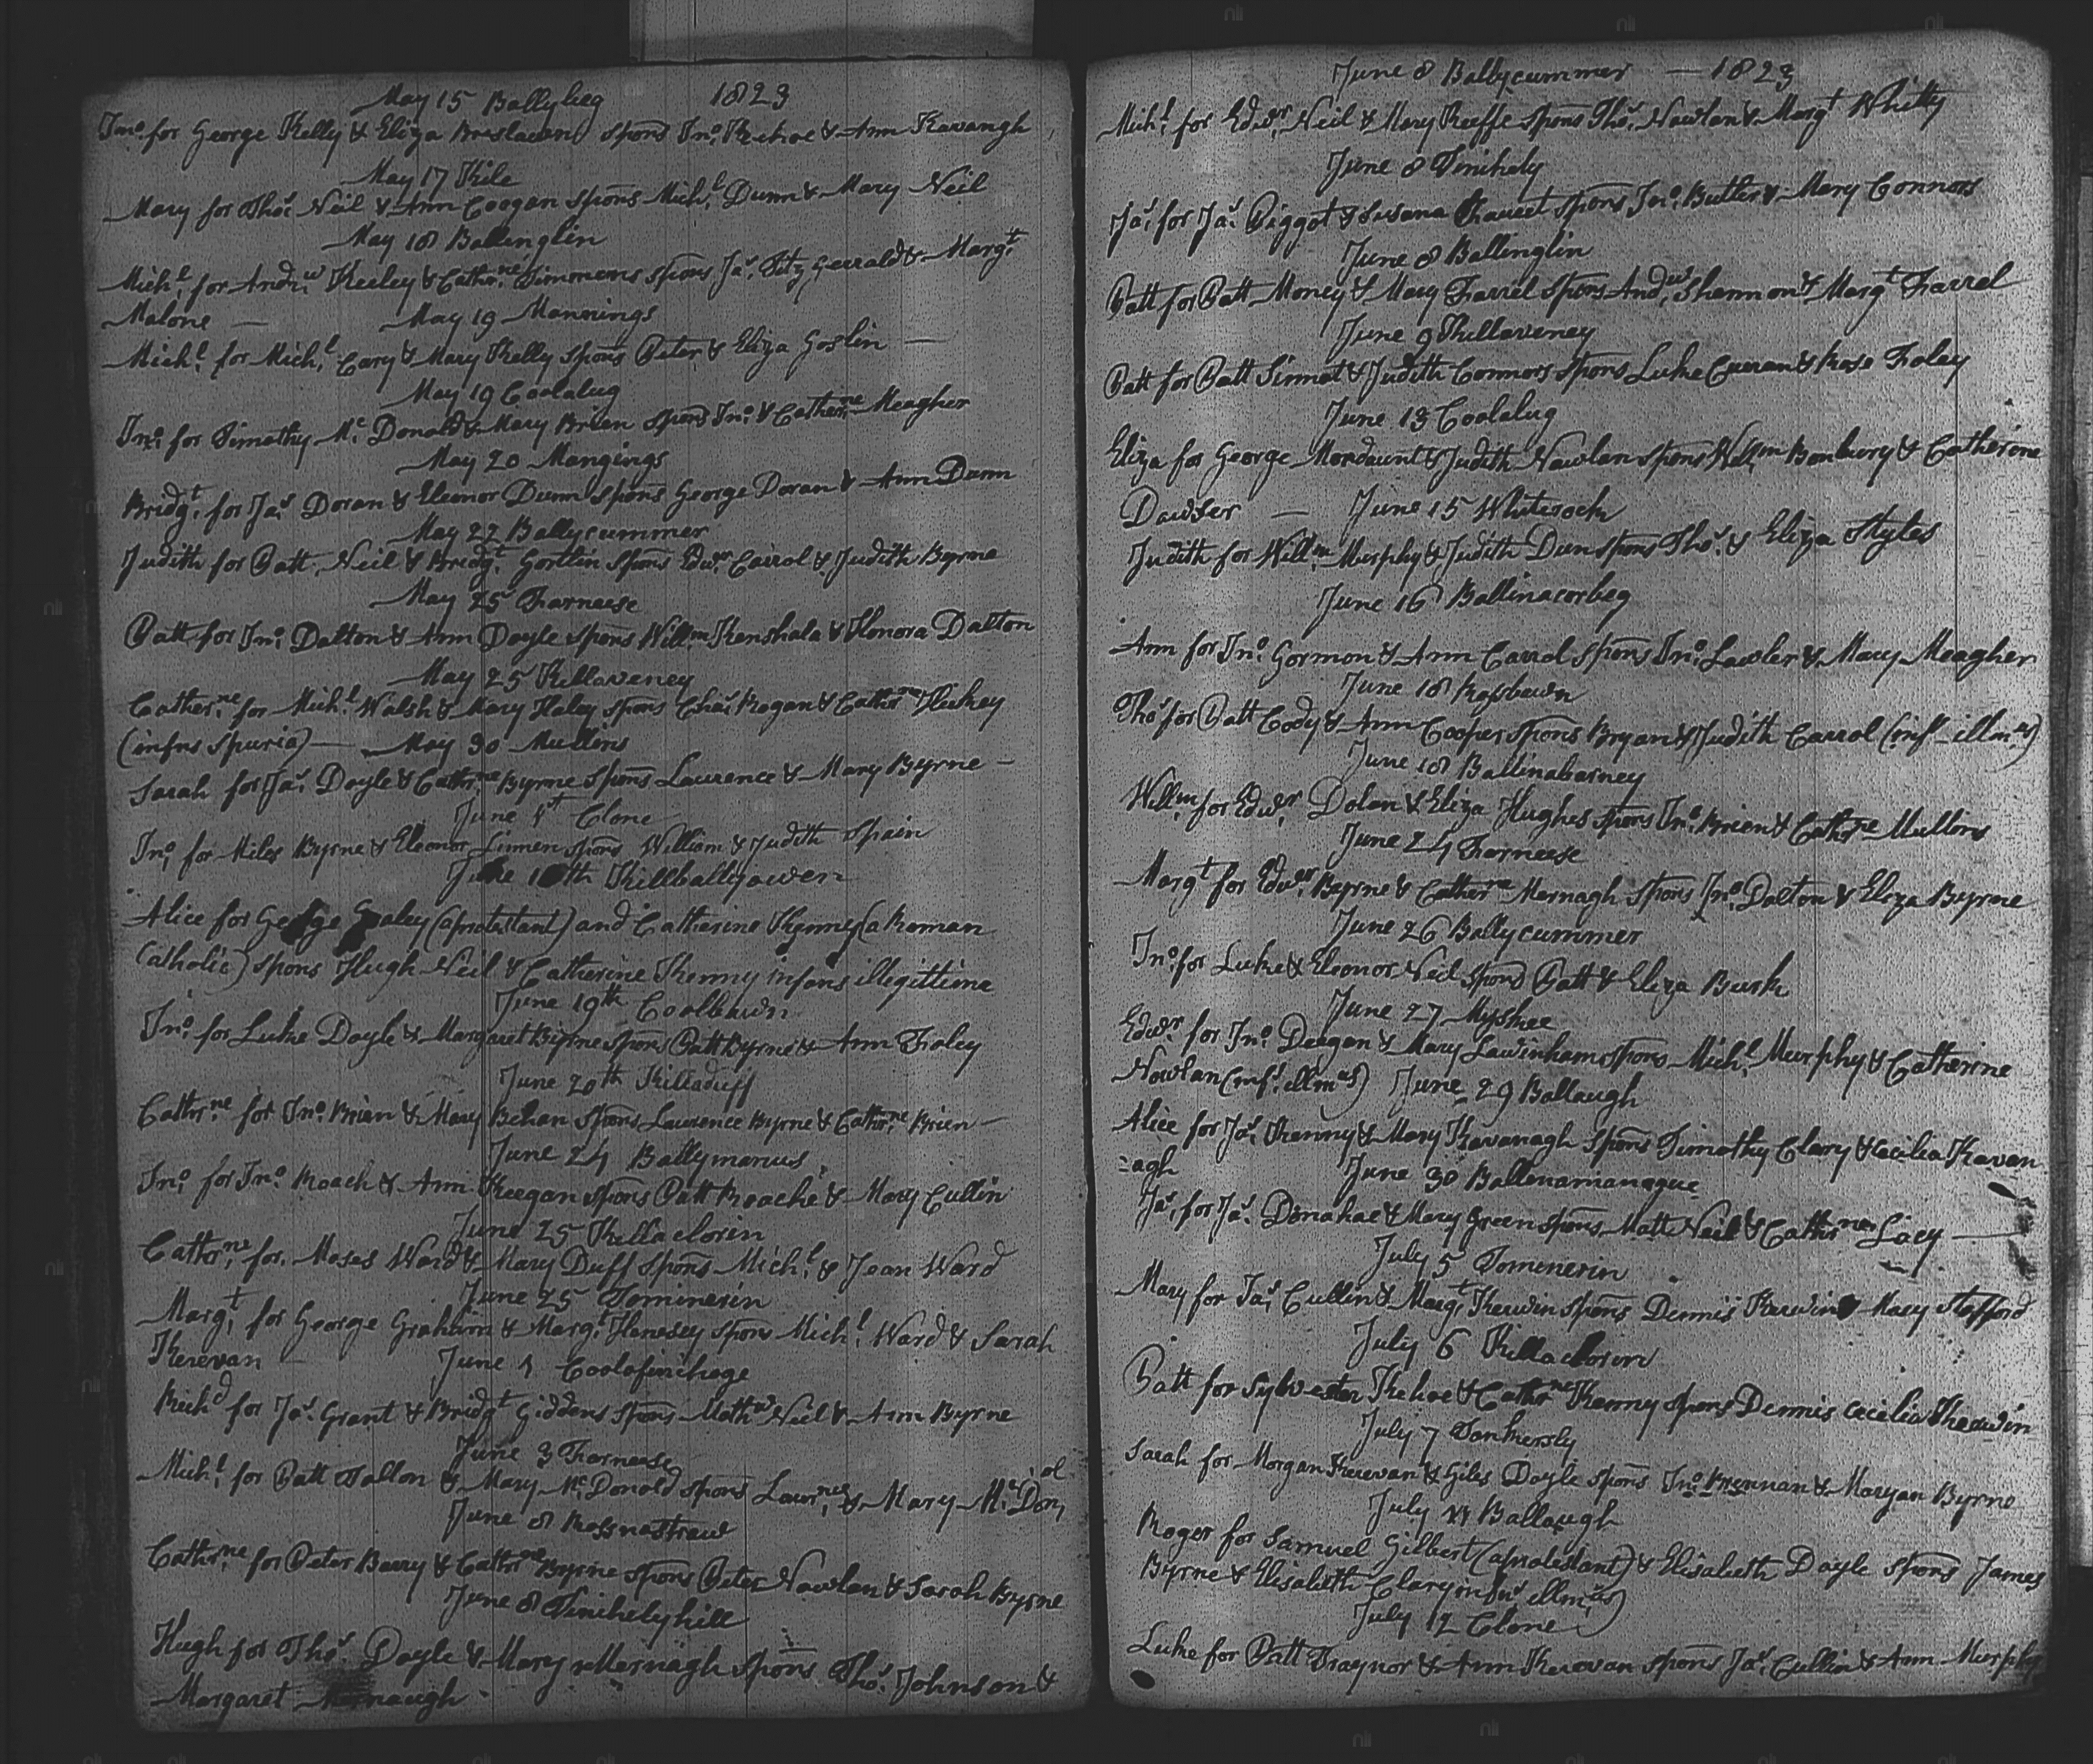 May 15 Ballybeg 1823
Jno. for George Kelly & Eliza Breslawn spons Jno. Kehoe & Ann Kavangh
May 17 Kile
Mary for Thos. Neil & Ann Coogan spons Michl. Dunn & Mary Neil
May 18 Ballinglin
Michl. for Andw. Keeley & Cathrne. Timmons spons Jas. Fitz Gerrald & Margt.
Malone — May 19 Mannings
Michl. for Michl. Cary & Mary Kelly spons Peter & Eliza Goslin —
May 19 Coolalug
Jno. for Timothy Mc. Donald & Mary Brien spons Jno. & Catherne Meagher
May 20 Mangings
Bridgt. for Jas. Doran & Eleonor Dunn spons George Doran & Ann Dunn
May 22 Ballycummer
Judith for Patt. Neil & Bridgt. Gortlin spons Edwr. Carrol & Judith Byrne
May 25 Farneese
Patt for Jno. Dalton & Ann Doyle spons Willm. Kenshala & Honora Dalton
May 25 Killaveney
Catherne. for Michl. Walsh & Mary Haley spons Chas. Rogan & Cathrne Hickey
(infns Spuria) — May 30 Mullins
Sarah for Jas. Doyle & Cathrne. Byrne spons Laurence & Mary Byrne —
June 1st Clone
Jno. for Miles Byrne & Eleonor Linnen spons William & Judith Spain
June 10th Killballyowen
Alice for George Galey (aprotestant) and Catherine Kenny (a Roman
Catholic) spons Hugh Neil & Catherine Kenny infans illegittima
June 19th Coolbawn
Jno. for Luke Doyle & Margaret Byrne spons Patt Byrne & Ann Foley
June 20th Killaduff
Cathrne. for Jno. Brien & Mary Behan spons Laurence Byrne & Cathrne. Brien —
June 24 Ballymanus
Jno. for Jno. Roach & Ann Keegan spons Patt Roache & Mary Cullin
June 25 Killaclorin
Cathrne. for. Moses Ward & Mary Duff spons Michl. & Jean Ward
June 25 Tominerin
Margt. for George Graham & Margt. Henesey spons Michl. Ward & Sarah
Kerevan — June 1 Coolafinchoge
Richd for Jas. Grant & Bridgt Giddens spons Mathw Neil & Ann Byrne
June 3 Farneese
Michl. for Patt Fallon & Mary Mc. Donald spons Lawrnce. & Mary Mc. Donol
June 8 Rossnastraw
Cathrne. for Peter Barry & Cathrne Byrne spons Peter Nowlan & Sarah Byrne
June 8 Tinihelyhill
Hugh for Thos. Doyle & Mary Mernagh spons Thos. Johnson &
Margaret Mernaugh
June 8 Ballycummer — 1823
Michl. for Edwr. Neil & Mary Keeffe spons Thos. Nowlan & Margt Whitty
June 8 Tinihely
Jas. for Jas. Piggot & Susana spons Jno. Butler & Mary Connors
June 8 Ballinglin
Patt for Patt Money & Mary Farrel spons Andw. Shannon & Margt Farrel
June 9 Killaveney
Patt for Patt Sinnot & Judith Connors spons Luke Curran & Rose Foley
June 13 Coolalug
Eliza for George Mordaunt & Judith Nowlan spons Willm Banbury & Catherine
Dawser — June 15 Whiterock
Judith for Willm. Murphy & Judith Dun spons Thos. & Eliza Styles
June 16 Ballinacorbeg
Ann for Jno. Gormon & Ann Carrol spons Jno. Lawler & Mary Meagher
June 18 Rossbawn
Thos for Patt Cody & Ann Cooper spons Bryan & Judith Carrol (inf- illmas)
June 18 Ballinabarney
Willm. for Edwr. Dolan & Eliza Hughes spons Jno. Brien & Cathrne Mullons
June 24 Forneese
Margt for Edwr. Byrne & Catherne Mernagh spons Jno. Dalton & Eliza Byrne
June 26 Ballycummer
Jno. for Luke & Eleonor Neil spons Patt & Eliza Burk
June 27 Myshee
Edwr. for Jno. Deegan & Mary Lawinham spons Michl. Murphy & Catherine
Nowlan (inf. illmas) June 29 Ballaugh
Alice for Jas. Kenny & Mary Kavanagh spons Timothy Clary & Cecilia Kavan
=agh June 30 Ballenamanogue
Jas. for Jas. Donahoe & Mary Green spons Matt Neil & Cathrne. Lacy —
July 5 Tominerin
Mary for Jas. Cullin & Margt. Kerwin spons Dennis Kerwin & Mary Stafford
July 6 Killaclorin
Patt for Sylvester Kehoe & Cathrne Kenny spons Dennis Cecilia Kerwin
July 7 Tonkersly
Sarah for Morgan Kerevan & Giles Doyle spons Jno. Brennan & Maryan Byrne
July 11 Ballaugh
Roger for Samuel Gilbert (aprotestant) & Elisabeth Doyle spons James
Byrne & Elisabeth Clary infns illmas)
July 12 Clone
Luke for Patt Traynor & Ann Kerevan spons Jas. Cullin & Ann Murphy